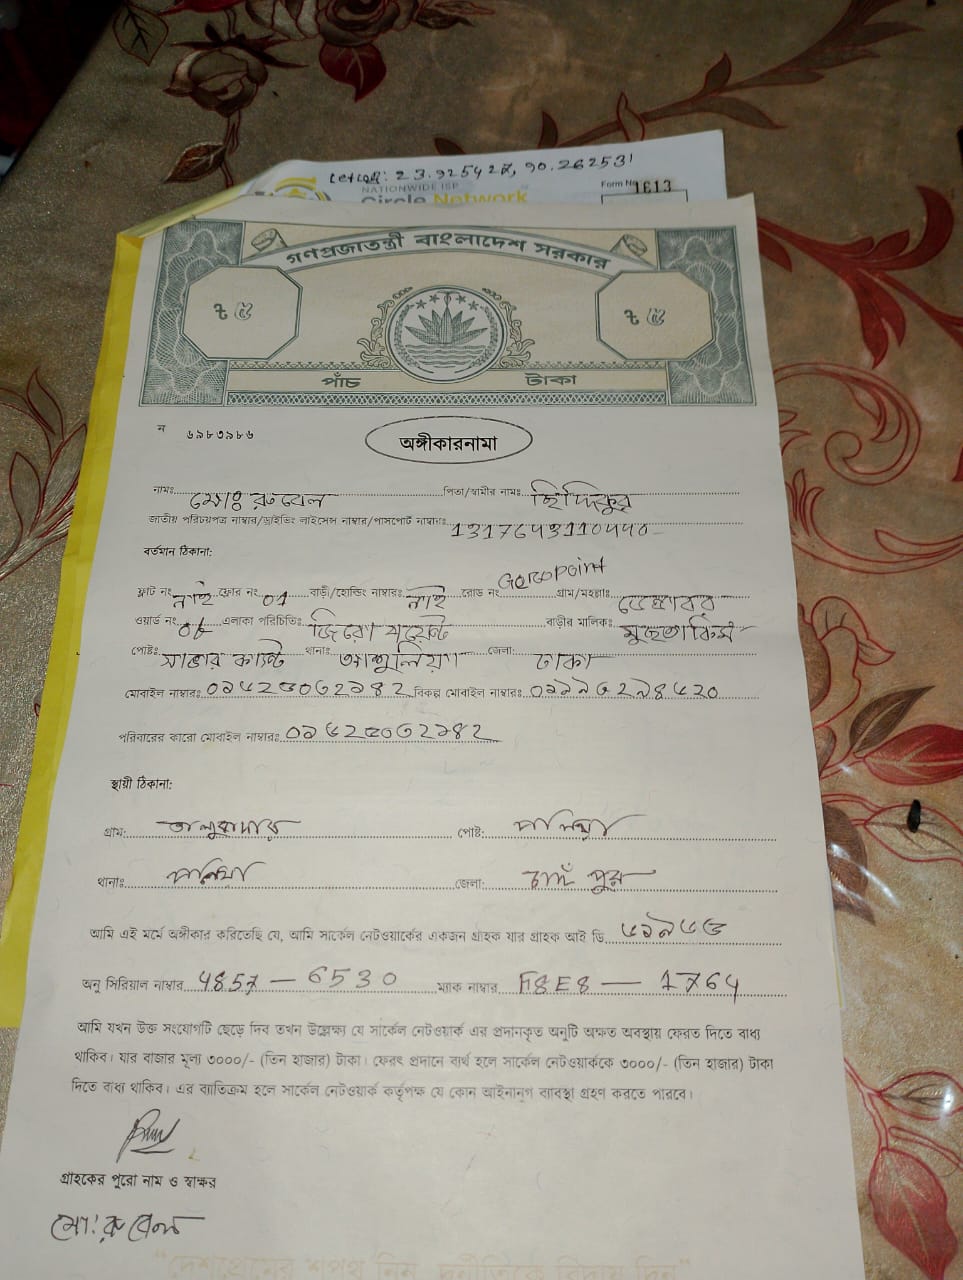 23.925427, 90.262531
NATIONWIDE ISP
Circle Network
Form No 1613
গণপ্রজাতন্ত্রী বাংলাদেশ সরকার
৳ ৫ ৳ ৫
পাঁচ টাকা
ন ৬৯৮৩৯৮৬
অঙ্গীকারনামা
নামঃ মোঃ রুবেল পিতা/স্বামীর নামঃ ছিদ্দিকুর
জাতীয় পরিচয়পত্র নাম্বার/ড্রাইভিং লাইসেন্স নাম্বার/পাসপোর্ট নাম্বারঃ 1317643110440
বর্তমান ঠিকানা:
ফ্লাট নং নাই ফ্লোর নং 01 বাড়ী/হোল্ডিং নাম্বারঃ নাই রোড নং Geropoint গ্রাম/মহল্লাঃ
ওয়ার্ড নং 08 এলাকা পরিচিতিঃ জিরো পয়েন্ট বাড়ীর মালিকঃ
পোষ্টঃ সাভার ক্যান্ট থানাঃ আশুলিয়া জেলা: ঢাকা
মোবাইল নাম্বারঃ বিকল্প মোবাইল নাম্বারঃ
পরিবারের কারো মোবাইল নাম্বারঃ
স্থায়ী ঠিকানা:
গ্রাম: তালুকদার পোষ্ট:
থানাঃ জেলা: চাঁদপুর
আমি এই মর্মে অঙ্গীকার করিতেছি যে, আমি সার্কেল নেটওয়ার্কের একজন গ্রাহক যার গ্রাহক আই ডি
অনু সিরিয়াল নাম্বার 4857 - 6530 ম্যাক নাম্বার F8E8 - 1764
আমি যখন উক্ত সংযোগটি ছেড়ে দিব তখন উল্লেক্ষ্য যে সার্কেল নেটওয়ার্ক এর প্রদানকৃত অনুটি অক্ষত অবস্থায় ফেরত দিতে বাধ্য
থাকিব। যার বাজার মূল্য ৩০০০/- (তিন হাজার) টাকা। ফেরৎ প্রদানে ব্যর্থ হলে সার্কেল নেটওয়ার্ককে ৩০০০/- (তিন হাজার) টাকা
দিতে বাধ্য থাকিব। এর ব্যতিক্রম হলে সার্কেল নেটওয়ার্ক কর্তৃপক্ষ যে কোন আইনানুগ ব্যবস্থা গ্রহণ করতে পারবে।
গ্রাহকের পুরো নাম ও স্বাক্ষর
মো: রুবেল
"দেশপ্রেমের শপথ নিন, দুর্নীতিকে বিদায় দিন"